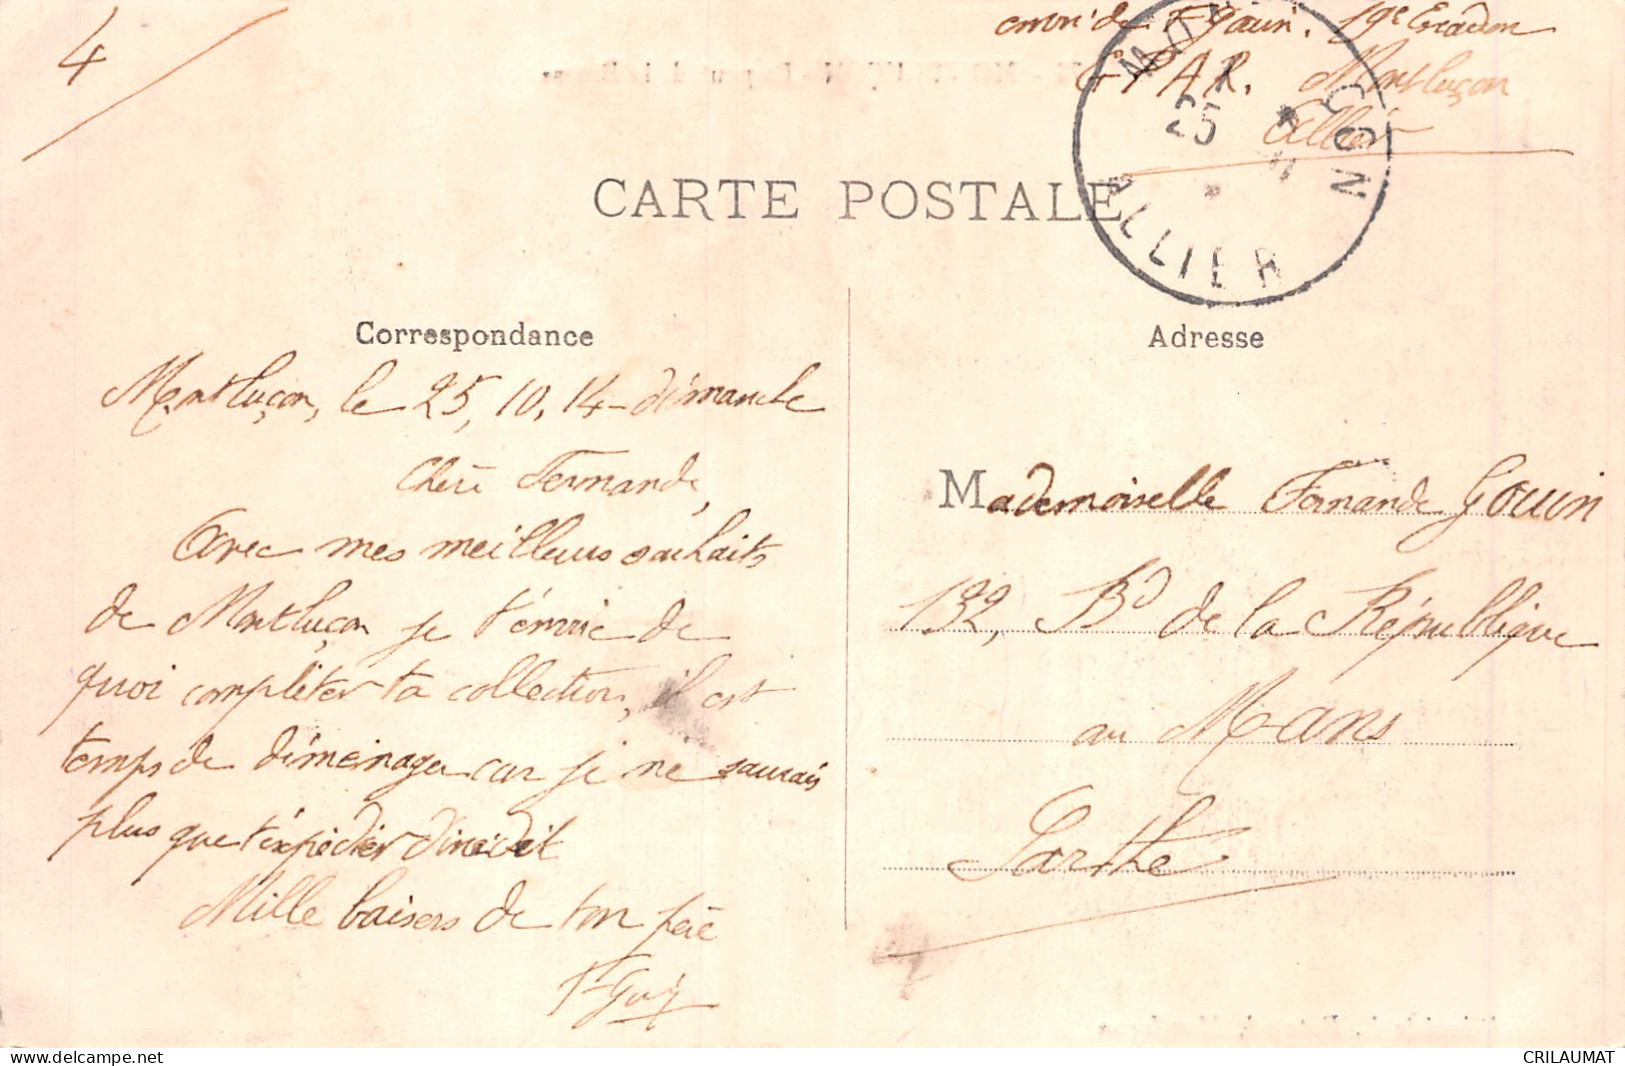 4
envoi de F Gouin. 19e Escadron
P A R. Montluçon
Allier
MONTLUÇON
25
ALLIER
CARTE POSTALE
Correspondance
Adresse
Montluçon, le 25, 10, 14 - dimanche
Chère Fernande,
Avec mes meilleurs souhaits
de Montluçon je t'envoie de
quoi compléter ta collection, il est
temps de déménager car je ne saurais
plus que t'expédier d'inédit
Mille baisers de ton père
Mademoiselle Fernande Gouin
132, Bd de la République
au Mans
Sarthe
www.delcampe.net
CRILAUMAT